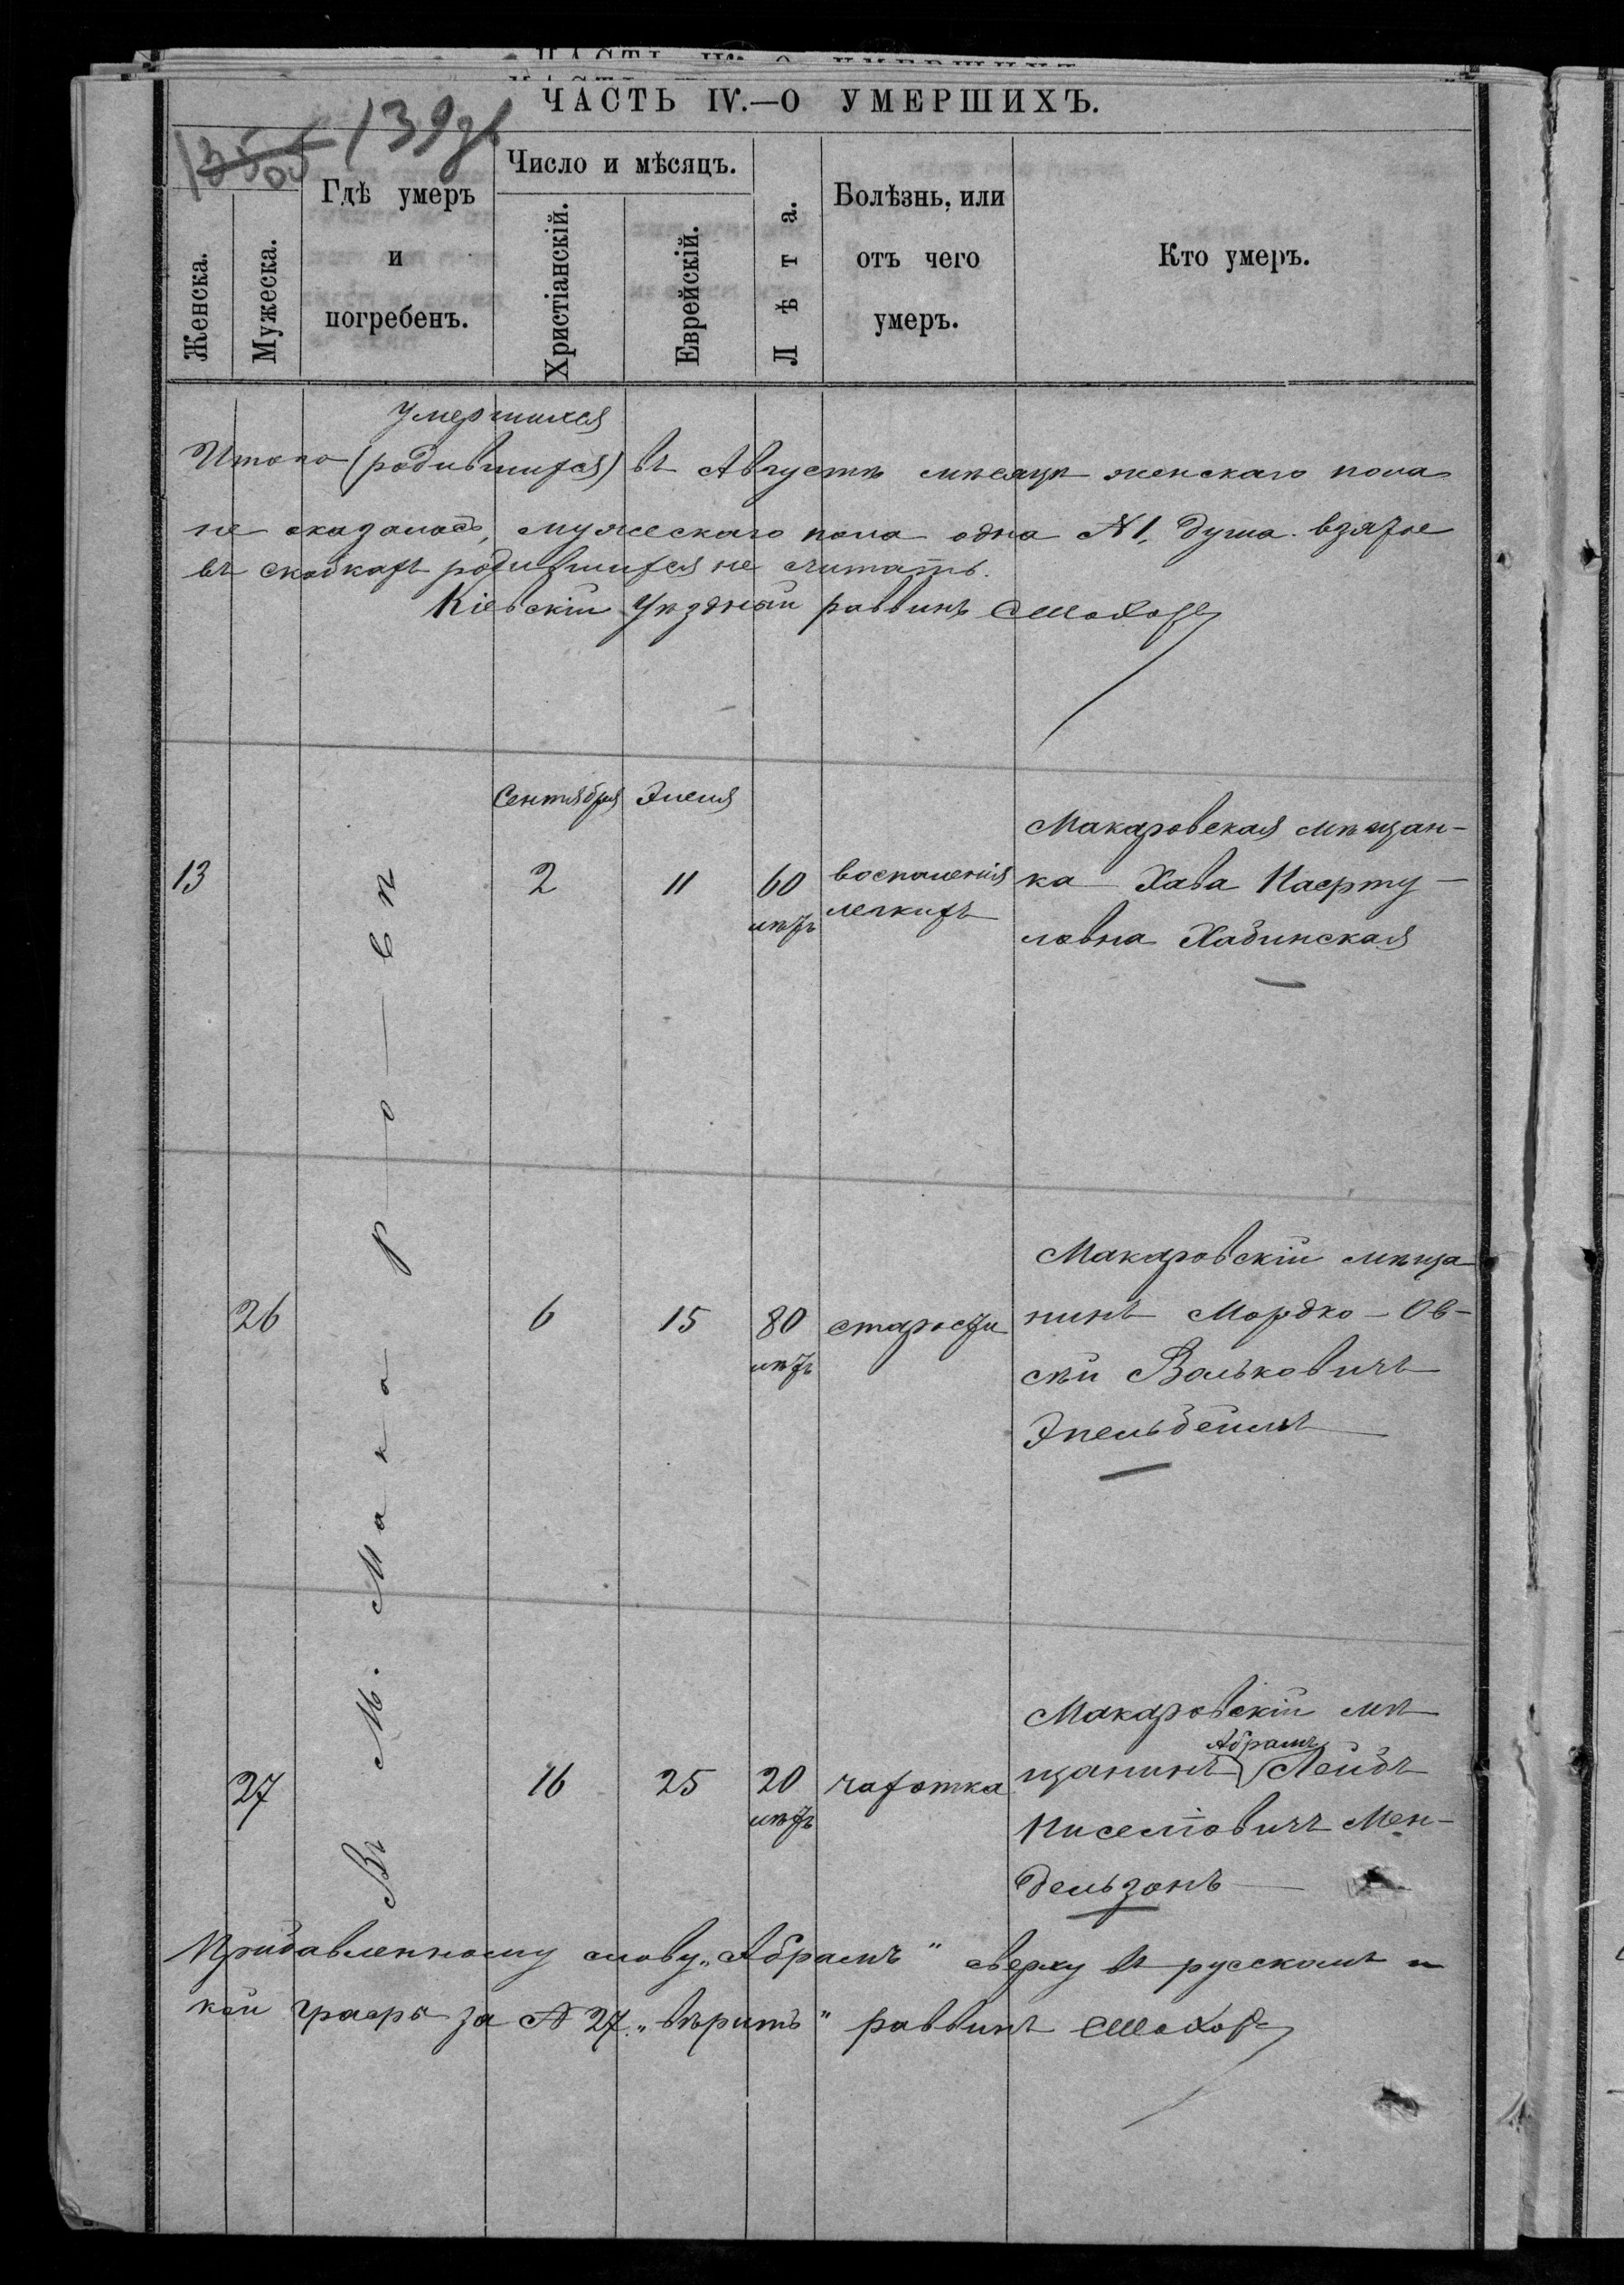 ЧАСТЬ IV.—О УМЕРШИХЪ.
139
Женска.
Мужеска.
Гдѣ умеръ
и
погребенъ.
Число и мѣсяцъ.
Христіанскій.
Еврейскій.
Лѣта.
Болѣзнь, или
отъ чего
умеръ.
Кто умеръ.
умершихся
Итого (родившихся) въ Августѣ мѣсяцѣ женскаго пола
не оказалось, мужескаго пола одна №1, душа. взятое
въ скобкахъ родившихся не считать.
Кіевскій Уѣздный раввинъ
Въ М. Макаровѣ
Сентября Элеля
13 2 11 60 лѣтъ
воспаленія
легкихъ
Макаровская мѣщан-
ка Хава
ловна Хабинская
26 6 15 80 лѣтъ
старости
Макаровскій мѣща
нинъ Мордко-Ов-
сѣй Вольковичъ
Эпельбеймъ
27 16 25 20 лѣтъ
чахотка
Макаровскій мѣ
щанинъ Абрамъ Лейбъ
Киселіовичъ Мен-
дельзонъ
Прибавленному слову „Абрамъ" сверху въ русской
графѣ за № 27. „вѣрить" раввинъ